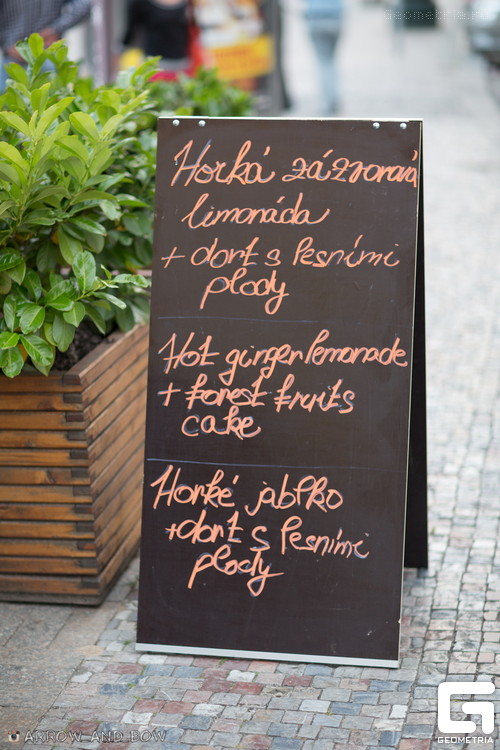 Horká zázvorová
limonáda
+ dort s lesními
plody
Hot ginger lemonade
+ forest fruits
cake
Horké jablko
+dort s lesními
plody
ARROW_AND_BOW
GEOMETRIA